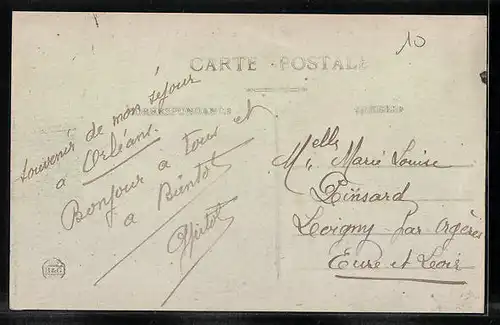 10
CARTE POSTALE
CORRESPONDANCE
ADRESSE
Souvenir de mon séjour
à Orléans.
Bonjour à tous et
à Bientot
Melle Marie Louise
Pinsard
Levigny par Orgères
Eure et Loir